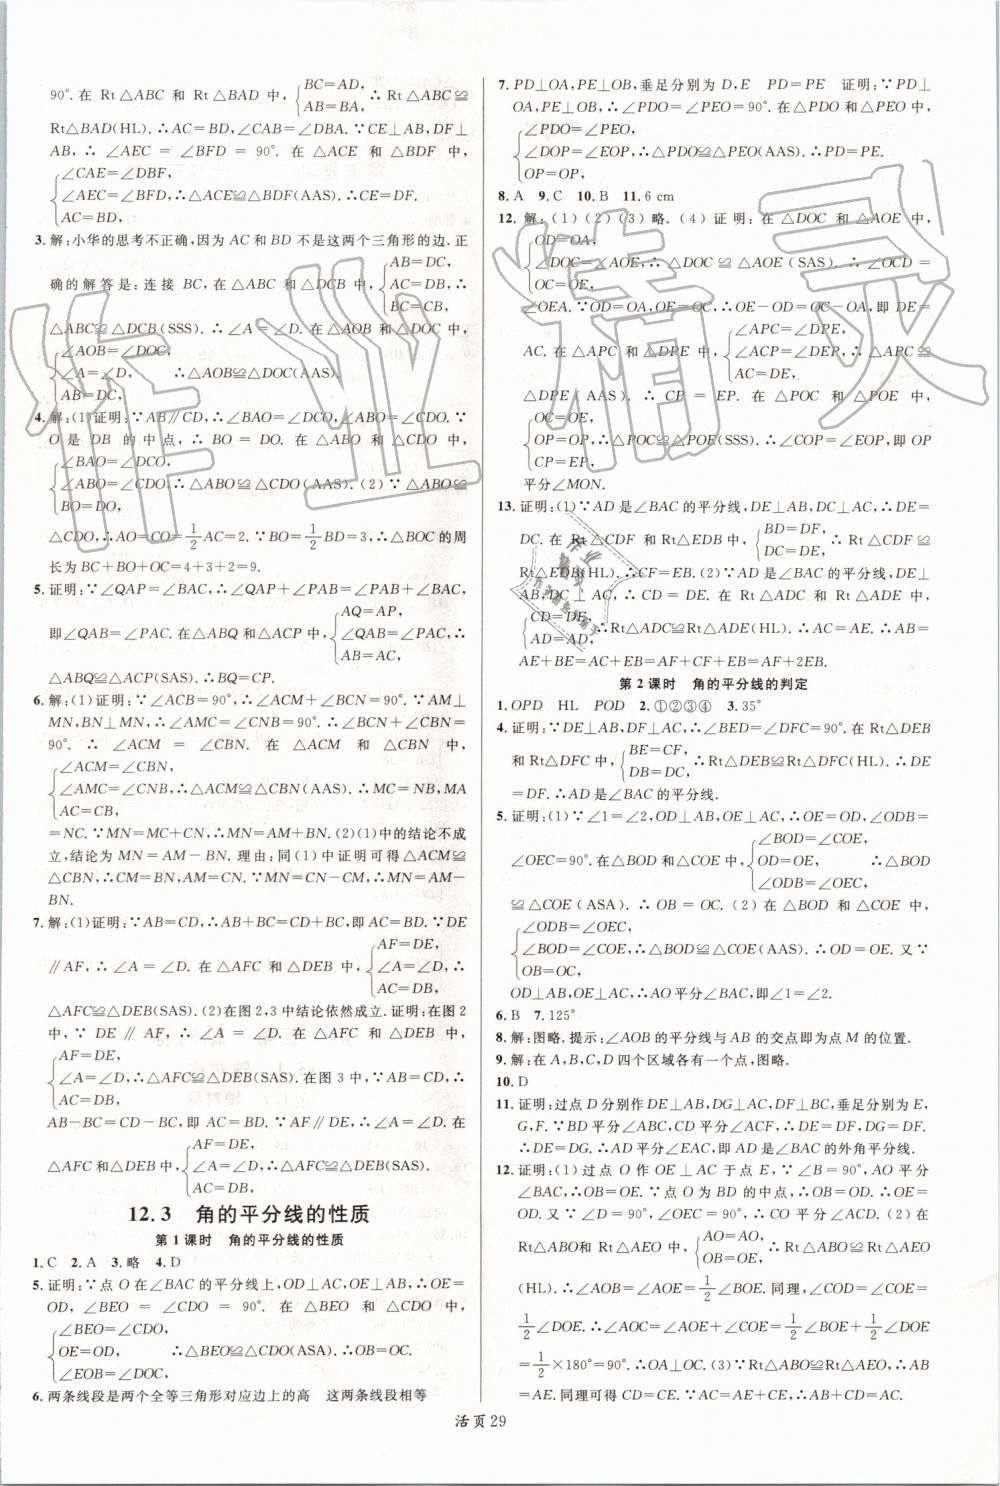 90°.在 Rt△ABC 和 Rt△BAD 中,{BC=AD, AB=BA,∴Rt△ABC≌
Rt△BAD(HL).∴AC=BD,∠CAB=∠DBA.∵CE⊥AB,DF⊥
AB,∴∠AEC=∠BFD=90°.在△ACE 和△BDF 中,
{∠CAE=∠DBF,
∠AEC=∠BFD,∴△ACE≌△BDF(AAS).∴CE=DF.
AC=BD,
3.解:小华的思考不正确,因为 AC 和 BD 不是这两个三角形的边.正
确的解答是:连接 BC,在△ABC 和△DCB 中,{AB=DC, AC=DB, BC=CB,∴
△ABC≌△DCB(SSS).∴∠A=∠D.在△AOB 和△DOC 中,
{∠AOB=∠DOC,
∠A=∠D, ∴△AOB≌△DOC(AAS).
AB=DC,
4.解:(1)证明:∵AB∥CD,∴∠BAO=∠DCO,∠ABO=∠CDO.∵
O 是 DB 的中点,∴BO=DO.在△ABO 和△CDO 中,
{∠BAO=∠DCO,
∠ABO=∠CDO,∴△ABO≌△CDO(AAS).(2)∵△ABO≌
BO=DO,
△CDO,∴AO=CO=1/2AC=2.∵BO=1/2BD=3,∴△BOC 的周
长为 BC+BO+OC=4+3+2=9.
5.证明:∵∠QAP=∠BAC,∴∠QAP+∠PAB=∠PAB+∠BAC,
即∠QAB=∠PAC.在△ABQ 和△ACP 中,{AQ=AP, ∠QAB=∠PAC, AB=AC,∴
△ABQ≌△ACP(SAS).∴BQ=CP.
6.解:(1)证明:∵∠ACB=90°,∴∠ACM+∠BCN=90°.∵AM⊥
MN,BN⊥MN,∴∠AMC=∠CNB=90°.∴∠BCN+∠CBN=
90°.∴∠ACM=∠CBN.在△ACM 和△CBN 中,
{∠ACM=∠CBN,
∠AMC=∠CNB,∴△ACM≌△CBN(AAS).∴MC=NB,MA
AC=CB,
=NC.∵MN=MC+CN,∴MN=AM+BN.(2)(1)中的结论不成
立,结论为 MN=AM-BN.理由:同(1)中证明可得△ACM≌
△CBN,∴CM=BN,AM=CN.∵MN=CN-CM,∴MN=AM-
BN.
7.解:(1)证明:∵AB=CD,∴AB+BC=CD+BC,即 AC=BD.∵DE
∥AF,∴∠A=∠D.在△AFC 和△DEB 中,{AF=DE, ∠A=∠D, AC=DB,∴
△AFC≌△DEB(SAS).(2)在图 2,3 中结论依然成立.证明:在图 2
中,∵DE∥AF,∴∠A=∠D.在△AFC 和△DEB 中,
{AF=DE,
∠A=∠D,∴△AFC≌△DEB(SAS).在图 3 中,∵AB=CD,∴
AC=DB,
AB-BC=CD-BC,即 AC=BD.∵AF∥DE,∴∠A=∠D.在
△AFC 和△DEB 中,{AF=DE, ∠A=∠D, AC=DB,∴△AFC≌△DEB(SAS).
12.3 角的平分线的性质
第 1 课时 角的平分线的性质
1.C 2.A 3.略 4.D
5.证明:∵点 O 在∠BAC 的平分线上,OD⊥AC,OE⊥AB,∴OE=
OD,∠BEO=∠CDO=90°.在△BEO 和△CDO 中,
{∠BEO=∠CDO,
OE=OD, ∴△BEO≌△CDO(ASA).∴OB=OC.
∠EOB=∠DOC,
6.两条线段是两个全等三角形对应边上的高 这两条线段相等
7.PD⊥OA,PE⊥OB,垂足分别为 D,E PD=PE 证明:∵PD⊥
OA,PE⊥OB,∴∠PDO=∠PEO=90°.在△PDO 和△PEO 中,
{∠PDO=∠PEO,
∠DOP=∠EOP,∴△PDO≌△PEO(AAS).∴PD=PE.
OP=OP,
8.A 9.C 10.B 11.6 cm
12.解:(1)(2)(3)略.(4)证明:在△DOC 和△AOE 中,
{OD=OA,
∠DOC=∠AOE,∴△DOC≌△AOE(SAS).∴∠OCD=
OC=OE,
∠OEA.∵OD=OA,OE=OC,∴OE-OD=OC-OA,即 DE=
AC.在△APC 和△DPE 中,{∠APC=∠DPE, ∠PCA=∠PED, AC=DE,∴△APC≌
△DPE(AAS).∴CP=EP.在△POC 和△POE 中,
{OC=OE,
OP=OP,∴△POC≌△POE(SSS).∴∠COP=∠EOP,即 OP
CP=EP,
平分∠MON.
13.证明:(1)∵AD 是∠BAC 的平分线,DE⊥AB,DC⊥AC,∴DE=
DC.在 Rt△CDF 和 Rt△EDB 中,{BD=DF, DC=DE,∴Rt△CDF≌
Rt△EDB(HL).∴CF=EB.(2)∵AD 是∠BAC 的平分线,DE⊥
AB,DC⊥AC,∴CD=DE.在 Rt△ADC 和 Rt△ADE 中,
{CD=DE,
AD=AD,∴Rt△ADC≌Rt△ADE(HL).∴AC=AE.∴AB=
AE+BE=AC+EB=AF+CF+EB=AF+2EB.
第 2 课时 角的平分线的判定
1.OPD HL POD 2.①②③④ 3.35°
4.证明:∵DE⊥AB,DF⊥AC,∴∠BED=∠DFC=90°.在 Rt△DEB
和 Rt△DFC 中,{BE=CF, DB=DC,∴Rt△DEB≌Rt△DFC(HL).∴DE
=DF.∴AD 是∠BAC 的平分线.
5.证明:(1)∵∠1=∠2,OD⊥AB,OE⊥AC,∴OE=OD,∠ODB=
∠OEC=90°.在△BOD 和△COE 中,{∠BOD=∠COE, OD=OE, ∠ODB=∠OEC,∴△BOD
≌△COE(ASA).∴OB=OC.(2)在△BOD 和△COE 中,
{∠ODB=∠OEC,
∠BOD=∠COE,∴△BOD≌△COE(AAS).∴OD=OE.又∵
OB=OC,
OD⊥AB,OE⊥AC,∴AO 平分∠BAC,即∠1=∠2.
6.B 7.125°
8.解:图略.提示:∠AOB 的平分线与 AB 的交点即为点 M 的位置.
9.解:在 A,B,C,D 四个区域各有一个点,图略.
10.D
11.证明:过点 D 分别作 DE⊥AB,DG⊥AC,DF⊥BC,垂足分别为 E,
G,F.∵BD 平分∠ABC,CD 平分∠ACF,∴DE=DF,DG=DF.
∴DE=DG.∴AD 平分∠EAC,即 AD 是∠BAC 的外角平分线.
12.证明:(1)过点 O 作 OE⊥AC 于点 E,∵∠B=90°,AO 平分
∠BAC,∴OB=OE.∵点 O 为 BD 的中点,∴OB=OD.∴OE=
OD.又∵∠D=90°,∠OEC=90°,∴CO 平分∠ACD.(2)在
Rt△ABO和 Rt△AEO 中,{AO=AO, OB=OE,∴Rt△ABO≌Rt△AEO
(HL).∴∠AOB=∠AOE=1/2∠BOE.同理,∠COD=∠COE=
1/2∠DOE.∴∠AOC=∠AOE+∠COE=1/2∠BOE+1/2∠DOE
=1/2×180°=90°.∴OA⊥OC.(3)∵Rt△ABO≌Rt△AEO,∴AB=
AE.同理可得 CD=CE.∵AC=AE+CE,∴AB+CD=AC.
活页 29
作业精灵